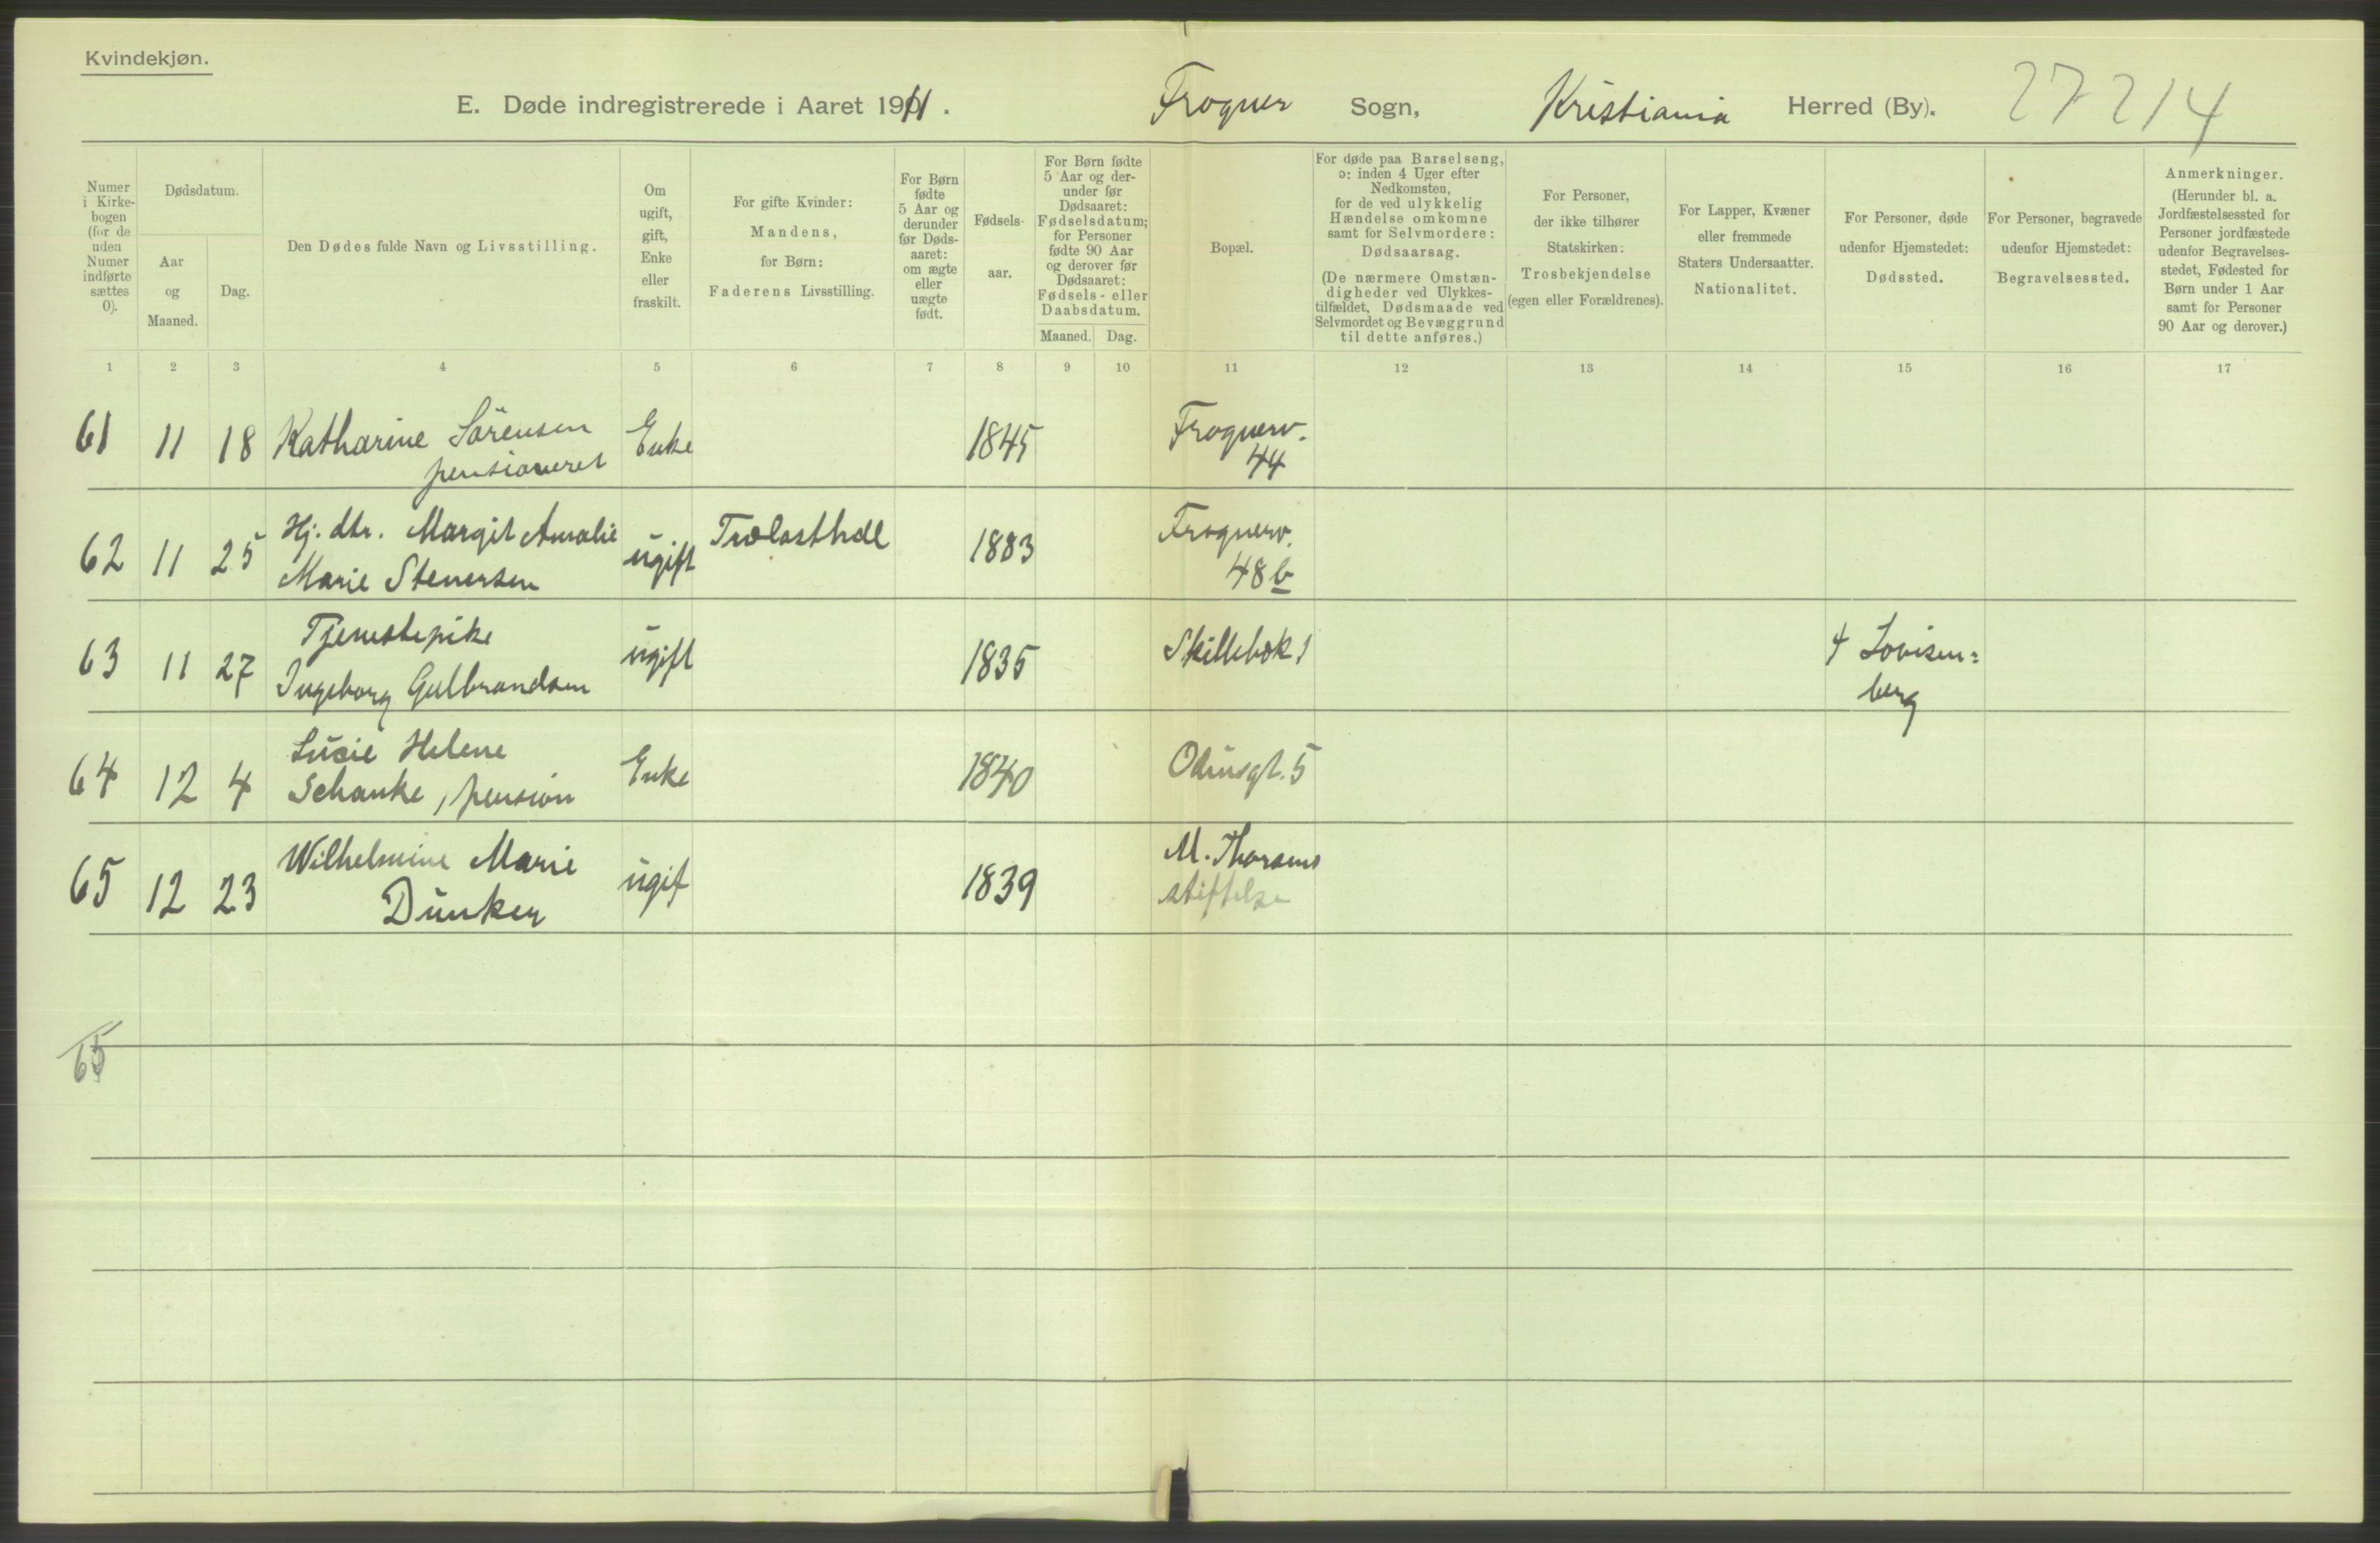 Kvindekjøn.
E. Døde indregistrerede i Aaret 1911. Frogner Sogn, Kristiania Herred (By). 27214
Numer i Kirkebogen (for de uden Numer indførte sættes 0).
Dødsdatum.
Aar og Maaned.
Dag.
Den Dødes fulde Navn og Livsstilling.
Om ugift, gift, Enke eller fraskilt.
For gifte Kvinder: Mandens, for Børn: Faderens Livsstilling.
For Børn fødte 5 Aar og derunder før Dødsaaret: om ægte eller uægte født.
Fødselsaar.
For Børn fødte 5 Aar og derunder før Dødsaaret: Fødselsdatum; for Personer fødte 90 Aar og derover før Dødsaaret: Fødsels- eller Daabsdatum.
Maaned. Dag.
Bopæl.
For døde paa Barselseng, ɔ: inden 4 Uger efter Nedkomsten, for de ved ulykkelig Hændelse omkomne samt for Selvmordere: Dødsaarsag.
(De nærmere Omstændigheder ved Ulykkestilfældet, Dødsmaade ved Selvmordet og Bevæggrund til dette anføres.)
For Personer, der ikke tilhører Statskirken: Trosbekjendelse (egen eller Forældrenes).
For Lapper, Kvæner eller fremmede Staters Undersaatter. Nationalitet.
For Personer, døde udenfor Hjemstedet: Dødssted.
For Personer, begravede udenfor Hjemstedet: Begravelsessted.
Anmerkninger. (Herunder bl. a. Jordfæstelsessted for Personer jordfæstede udenfor Begravelsesstedet, Fødested for Børn under 1 Aar samt for Personer 90 Aar og derover.)
1 2 3 4 5 6 7 8 9 10 11 12 13 14 15 16 17
61 11 18 Katharine Sörensen Enke 1845 Frognerv.
pensioneret 44
62 11 25 Hj. dtr. Margit Amalie ugift Trælasthdl 1883 Frognerv.
Marie Stenersen 48b
63 11 27 Tjenestepike ugift 1835 Skillebæk 1 4 Lovisen=
Ingeborg Gulbrandsen berg
64 12 4 Lucie Helene Enke 1840 Odinsgt. 5
Schanke, pension
65 12 23 Wilhelmine Marie ugif 1839 M. Thoresens
Dunker stiftelse
65